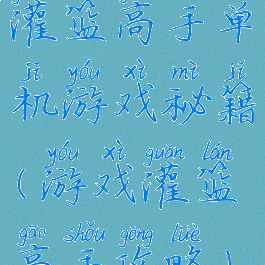 灌篮高手单
jī yóu xì mì jí
机游戏秘籍
yóu xì guàn lán
(游戏灌篮
gāo shǒu gōng lüè
高手攻略)